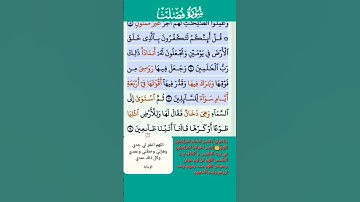 سُورَةُ فُصِّلَتْ
وَعَمِلُوا۟ ٱلصَّٰلِحَٰتِ لَهُمْ أَجْرٌ غَيْرُ مَمْنُونٍ
۞ قُلْ أَئِنَّكُمْ لَتَكْفُرُونَ بِٱلَّذِى خَلَقَ
ٱلْأَرْضَ فِى يَوْمَيْنِ وَتَجْعَلُونَ لَهُۥٓ أَندَادًا ذَٰلِكَ
رَبُّ ٱلْعَٰلَمِينَ وَجَعَلَ فِيهَا رَوَٰسِىَ مِن
فَوْقِهَا وَبَٰرَكَ فِيهَا وَقَدَّرَ فِيهَآ أَقْوَٰتَهَا فِىٓ أَرْبَعَةِ
أَيَّامٍ سَوَآءً لِّلسَّآئِلِينَ ثُمَّ ٱسْتَوَىٰٓ إِلَى
ٱلسَّمَآءِ وَهِىَ دُخَانٌ فَقَالَ لَهَا وَلِلْأَرْضِ ٱئْتِيَا
طَوْعًا أَوْ كَرْهًا قَالَتَآ أَتَيْنَا طَآئِعِينَ
اللهم اغفر لي جدي
وهزلي وخطئي وعمدي
وكل ذلك عندي